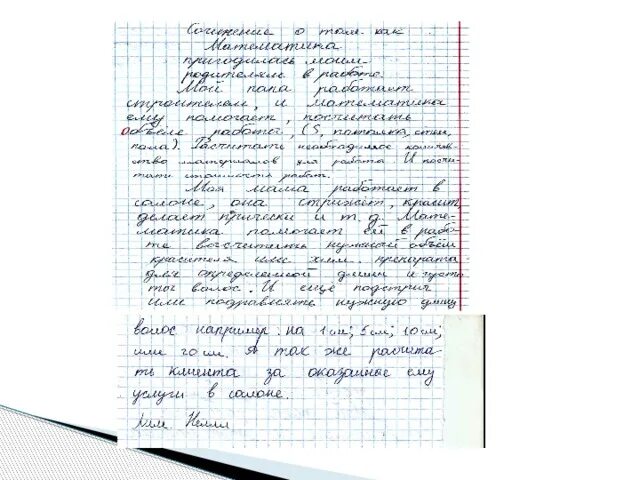 Сочинение о том как
Математика
пригодилась моим
родителям в работе.
Мой папа работает
строителем, и математика
ему помогает, посчитать
объём работы, (S, потолка, стен,
пола). Расчитать необходимое количес-
ство материалов для работы И посчи-
тать стоимость работ.
Моя мама работает в
салоне, она стрижёт, красит,
делает прически и т.д. Мате-
матика помогает ей в рабо-
те высчитать нужный объём
красителя или хим. препарата
для определённой длины и густо-
ты волос. И ещё подстричь
или подравнять нужную длину
волос например на 1см; 5см; 10см;
или 20см. А так же расчита-
ть клиента за оказанные ему
услуги в салоне.
Нелли